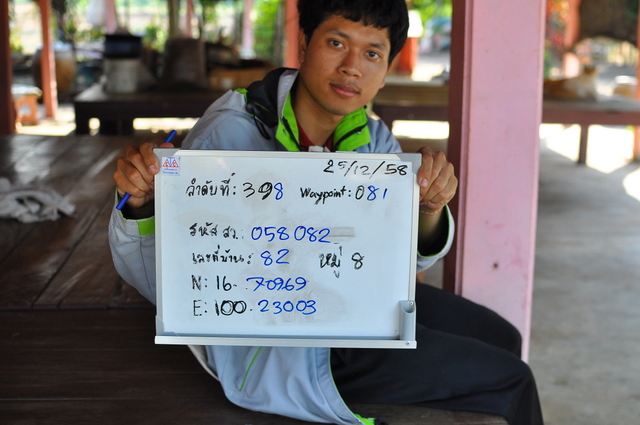 25/12/58
ลำดับที่: 398 Waypoint: 081
รหัส สว. 058 082
เลขที่บ้าน: 82 หมู่ 8
N: 16. 70969
E: 100. 23003